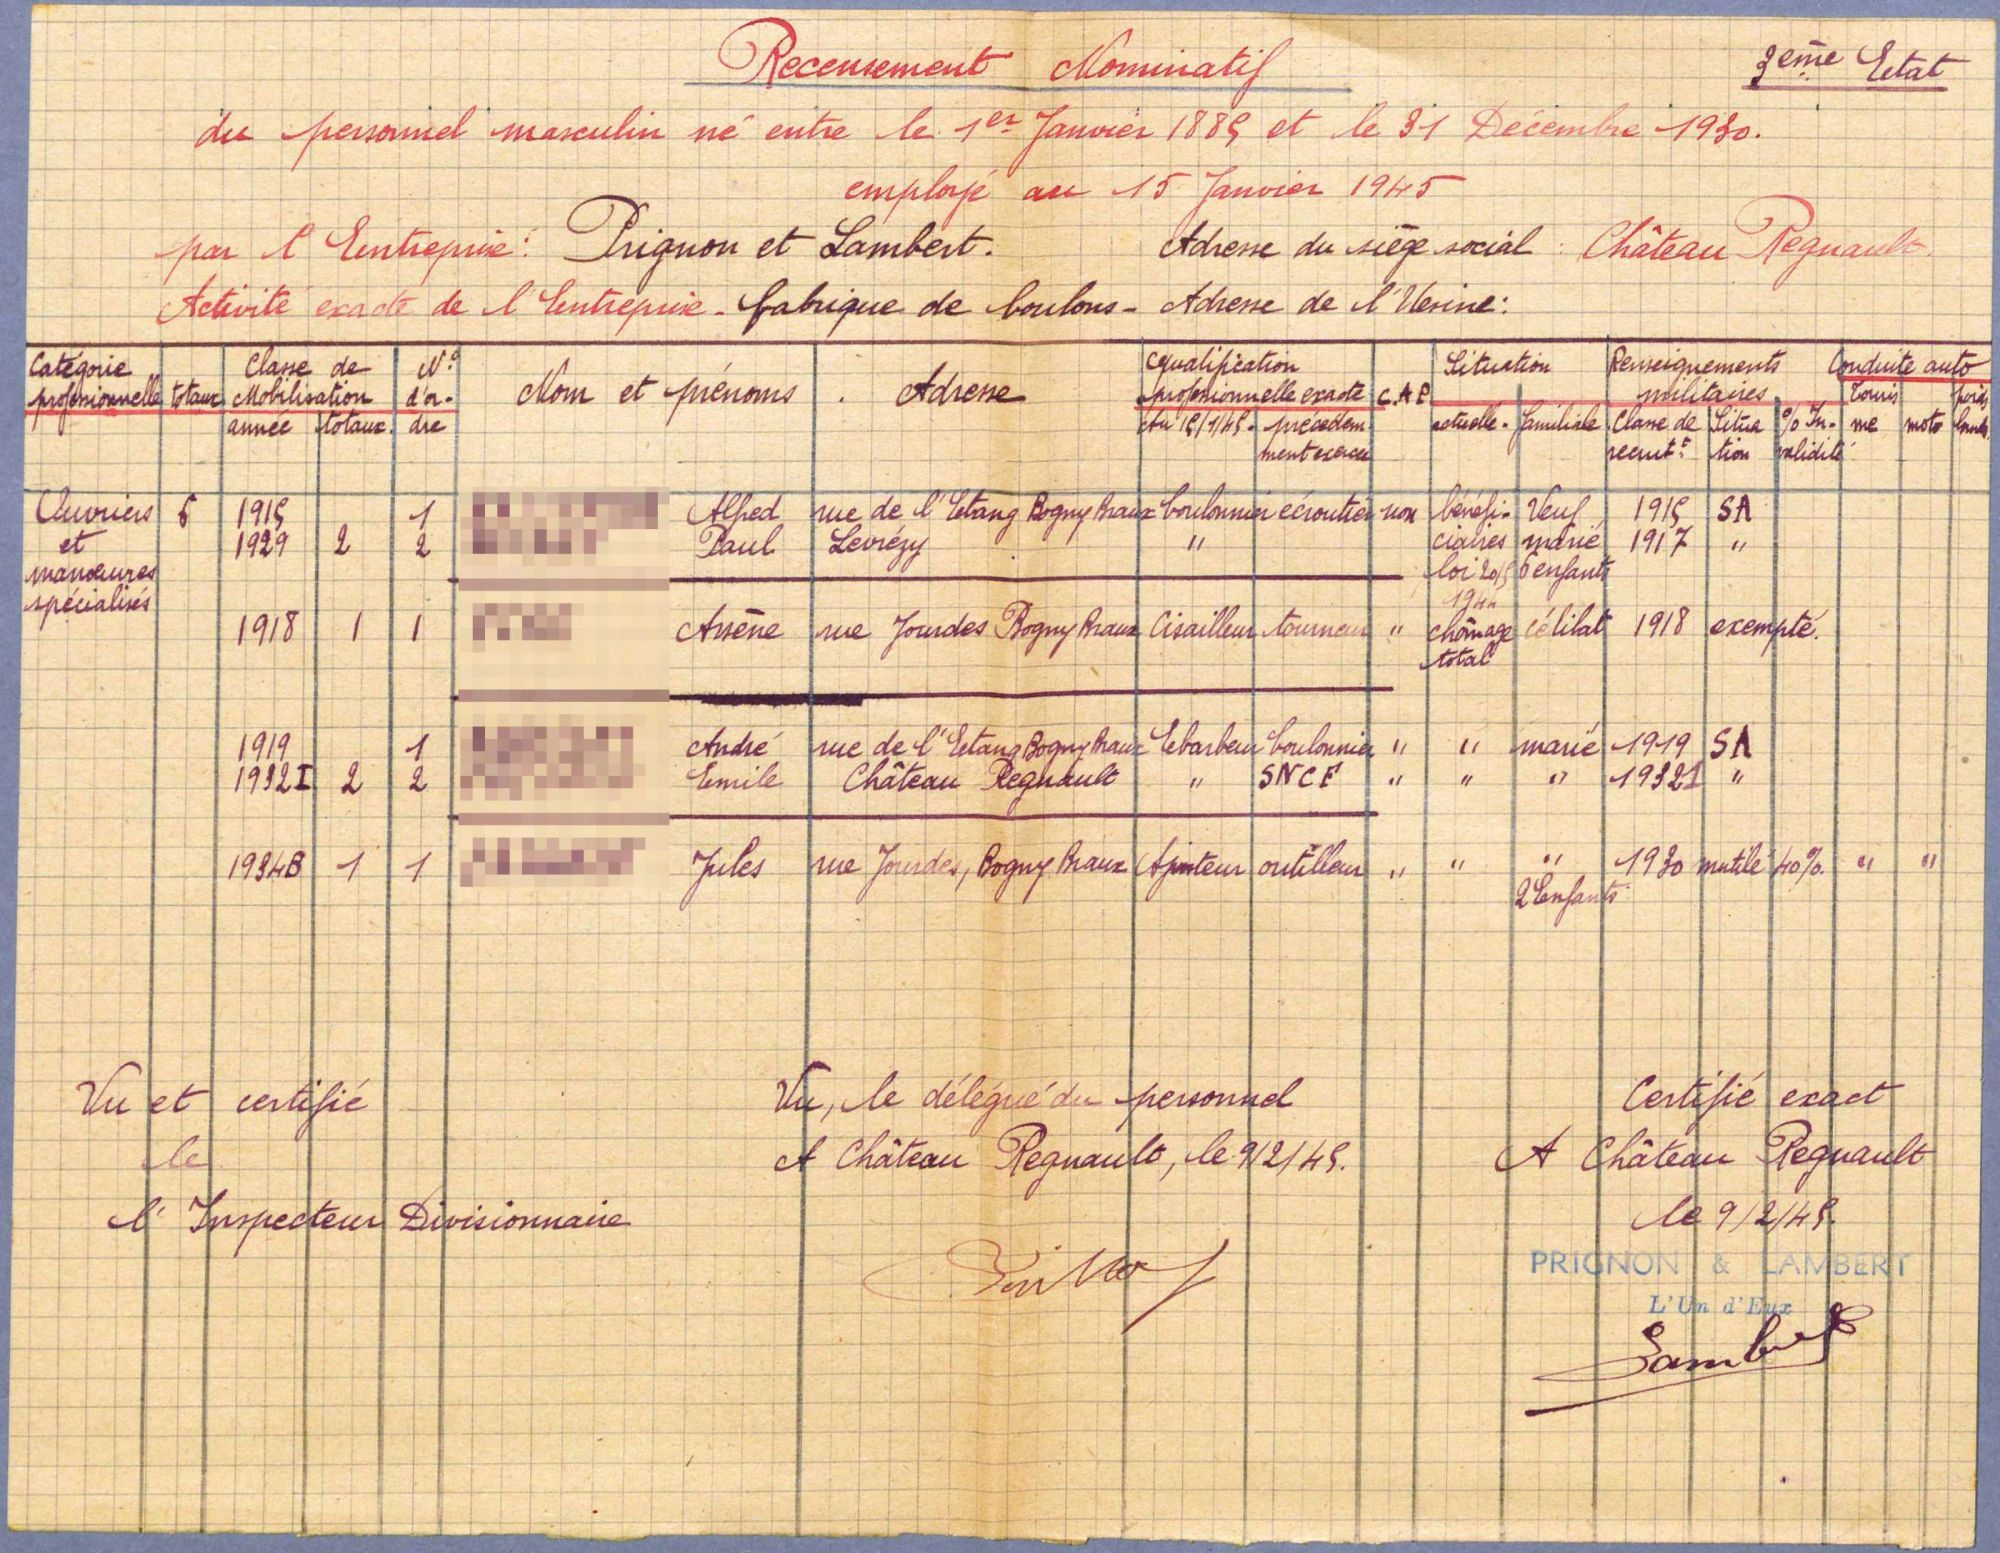 Recensement Nominatif
3ème Etat
du personnel masculin né entre le 1er Janvier 1885 et le 31 Décembre 1930.
employé au 15 Janvier 1945
par l'Entreprise: Prignon et Lambert. Adresse du siège social : Château Regnault.
Activité exacte de l'Entreprise - fabrique de boulons - Adresse de l'Usine:
Catégorie professionnelle totaux Classe de Mobilisation année totaux N° d'ordre Nom et prénoms Adresse Qualification professionnelle exacte Au 15/1/45 - précédemment exercée C.A.P Situation actuelle - familiale Renseignements militaires Classe de recrutt Situation % Invalidité Conduite auto Tourisme moto poids lourds
Ouvriers 6 1915 1 Alfred rue de l'Etang Bogny Braux boulonnier écroutier non bénéfi- Veuf 1915 SA
et 1929 2 2 Paul Levrézy " ciaires marié 1917 "
manœuvres loi 20/5 6 enfants
spécialisés 1944
1918 1 1 Arsène rue Jourdes Bogny Braux Cisailleur tourneur " chômage célibat 1918 exempté.
total
1919 1 André rue de l'Etang Bogny Braux Ebarbeur boulonnier " " marié 1919 SA
1932I 2 2 Emile Château Regnault " SNCF " " " 1932I "
1934B 1 1 Jules rue Jourdes, Bogny Braux Ajusteur outilleur " " " 1930 mutilé 40%. " "
2 Enfants
Vu et certifié
le
l'Inspecteur Divisionnaire
Vu, le délégué du personnel
A Château Regnault, le 9/2/45.
Certifié exact
A Château Regnault
le 9/2/45.
PRIGNON & LAMBERT
L'Un d'Eux
Lambert